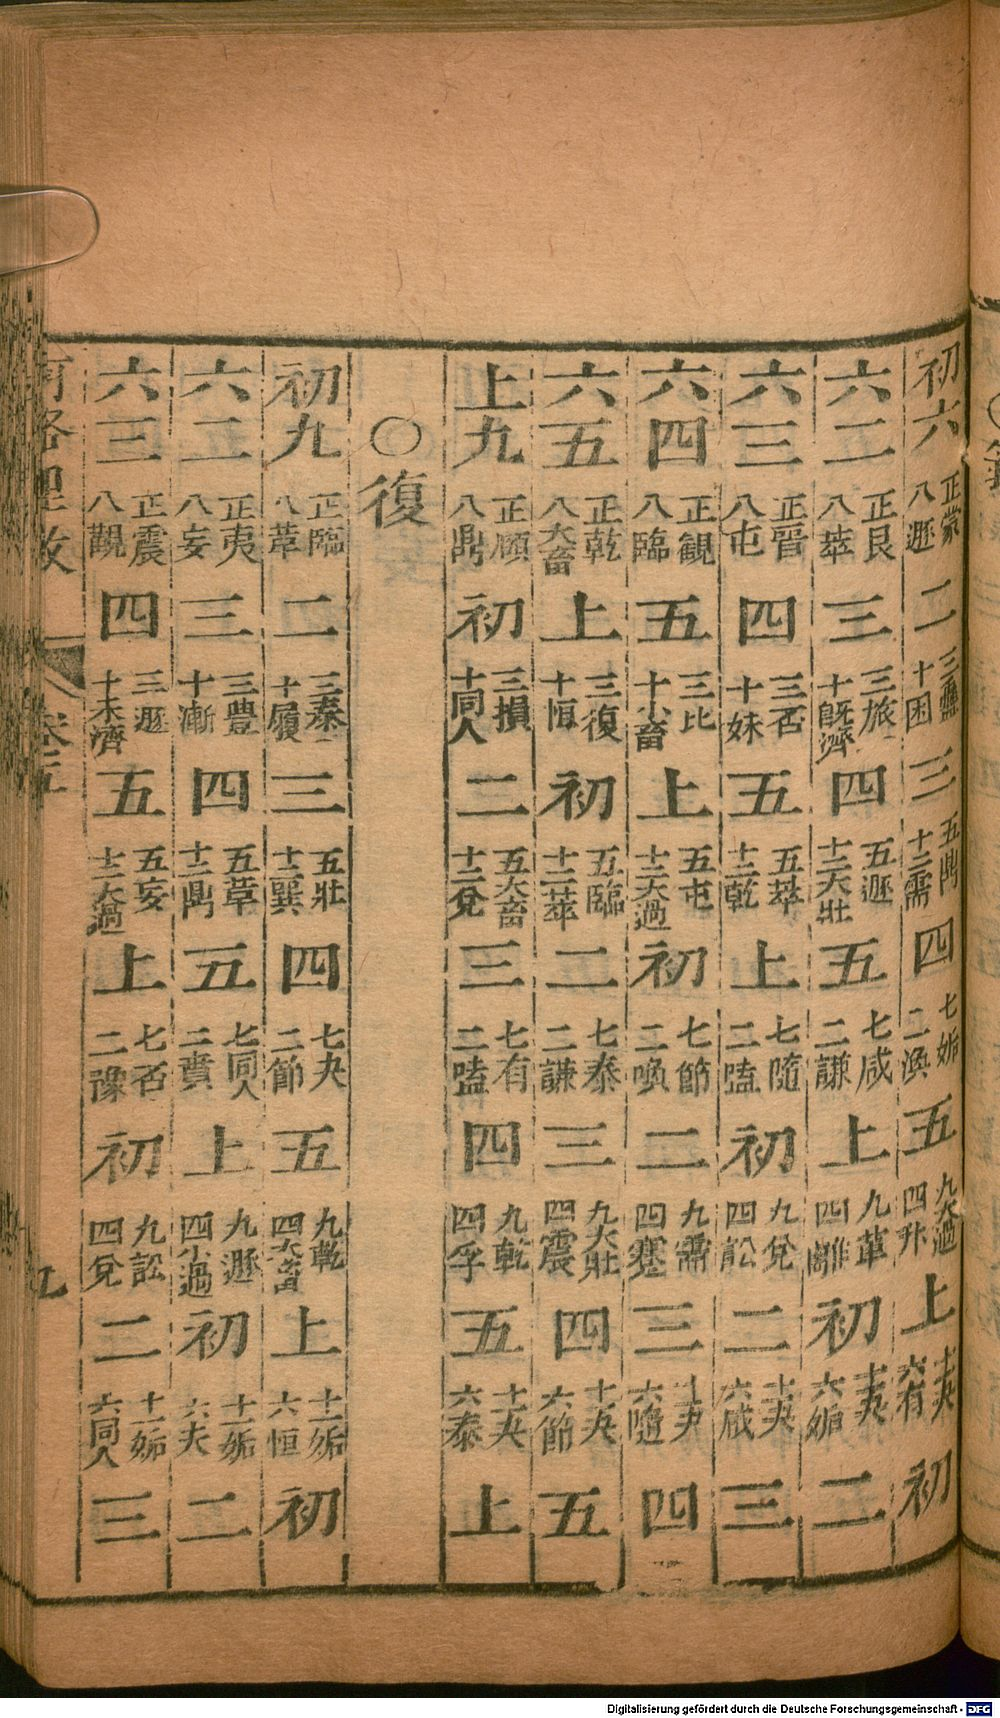 初六 正蒙 八遯 二 三蠱 十困 三 五鼎 十二需 四 七姤 二渙 五 九大過 四升 上 十一夬 六有 初
六二 正艮 八萃 三 三旅 十旣濟 四 五遯 十二大壯 五 七咸 二謙 上 九革 四離 初 十一夬 六姤 二
六三 正晉 八屯 四 三否 十妹 五 五萃 十二乾 上 七隨 二嗑 初 九兌 四訟 二 十一夬 六咸 三
六四 正觀 八臨 五 三比 十小畜 上 五屯 十二大過 初 七節 二喚 二 九需 四蹇 三 十一夬 六隨 四
六五 正乾 八大畜 上 三復 十恒 初 五臨 十二萃 二 七泰 二謙 三 九大壯 四震 四 十一夬 六節 五
上九 正頤 八鼎 初 三損 十同人 二 五大畜 十二兌 三 七有 二嗑 四 九乾 四孚 五 十一夬 六泰 上
○復
初九 正臨 八革 二 三泰 十履 三 五壯 十二巽 四 七夬 二節 五 九乾 四大畜 上 十一姤 六恒 初
六二 正夷 八妄 三 三豊 十漸 四 五革 十二鼎 五 七同人 二賁 上 九遯 四小過 初 十一姤 六夫 二
六三 正震 八觀 四 三遯 十未濟 五 五妄 十二大過 上 七否 二豫 初 九訟 四兌 二 十一姤 六同人 三
河洛理数 卷五 九
Digitalisierung gefördert durch die Deutsche Forschungsgemeinschaft - DFG